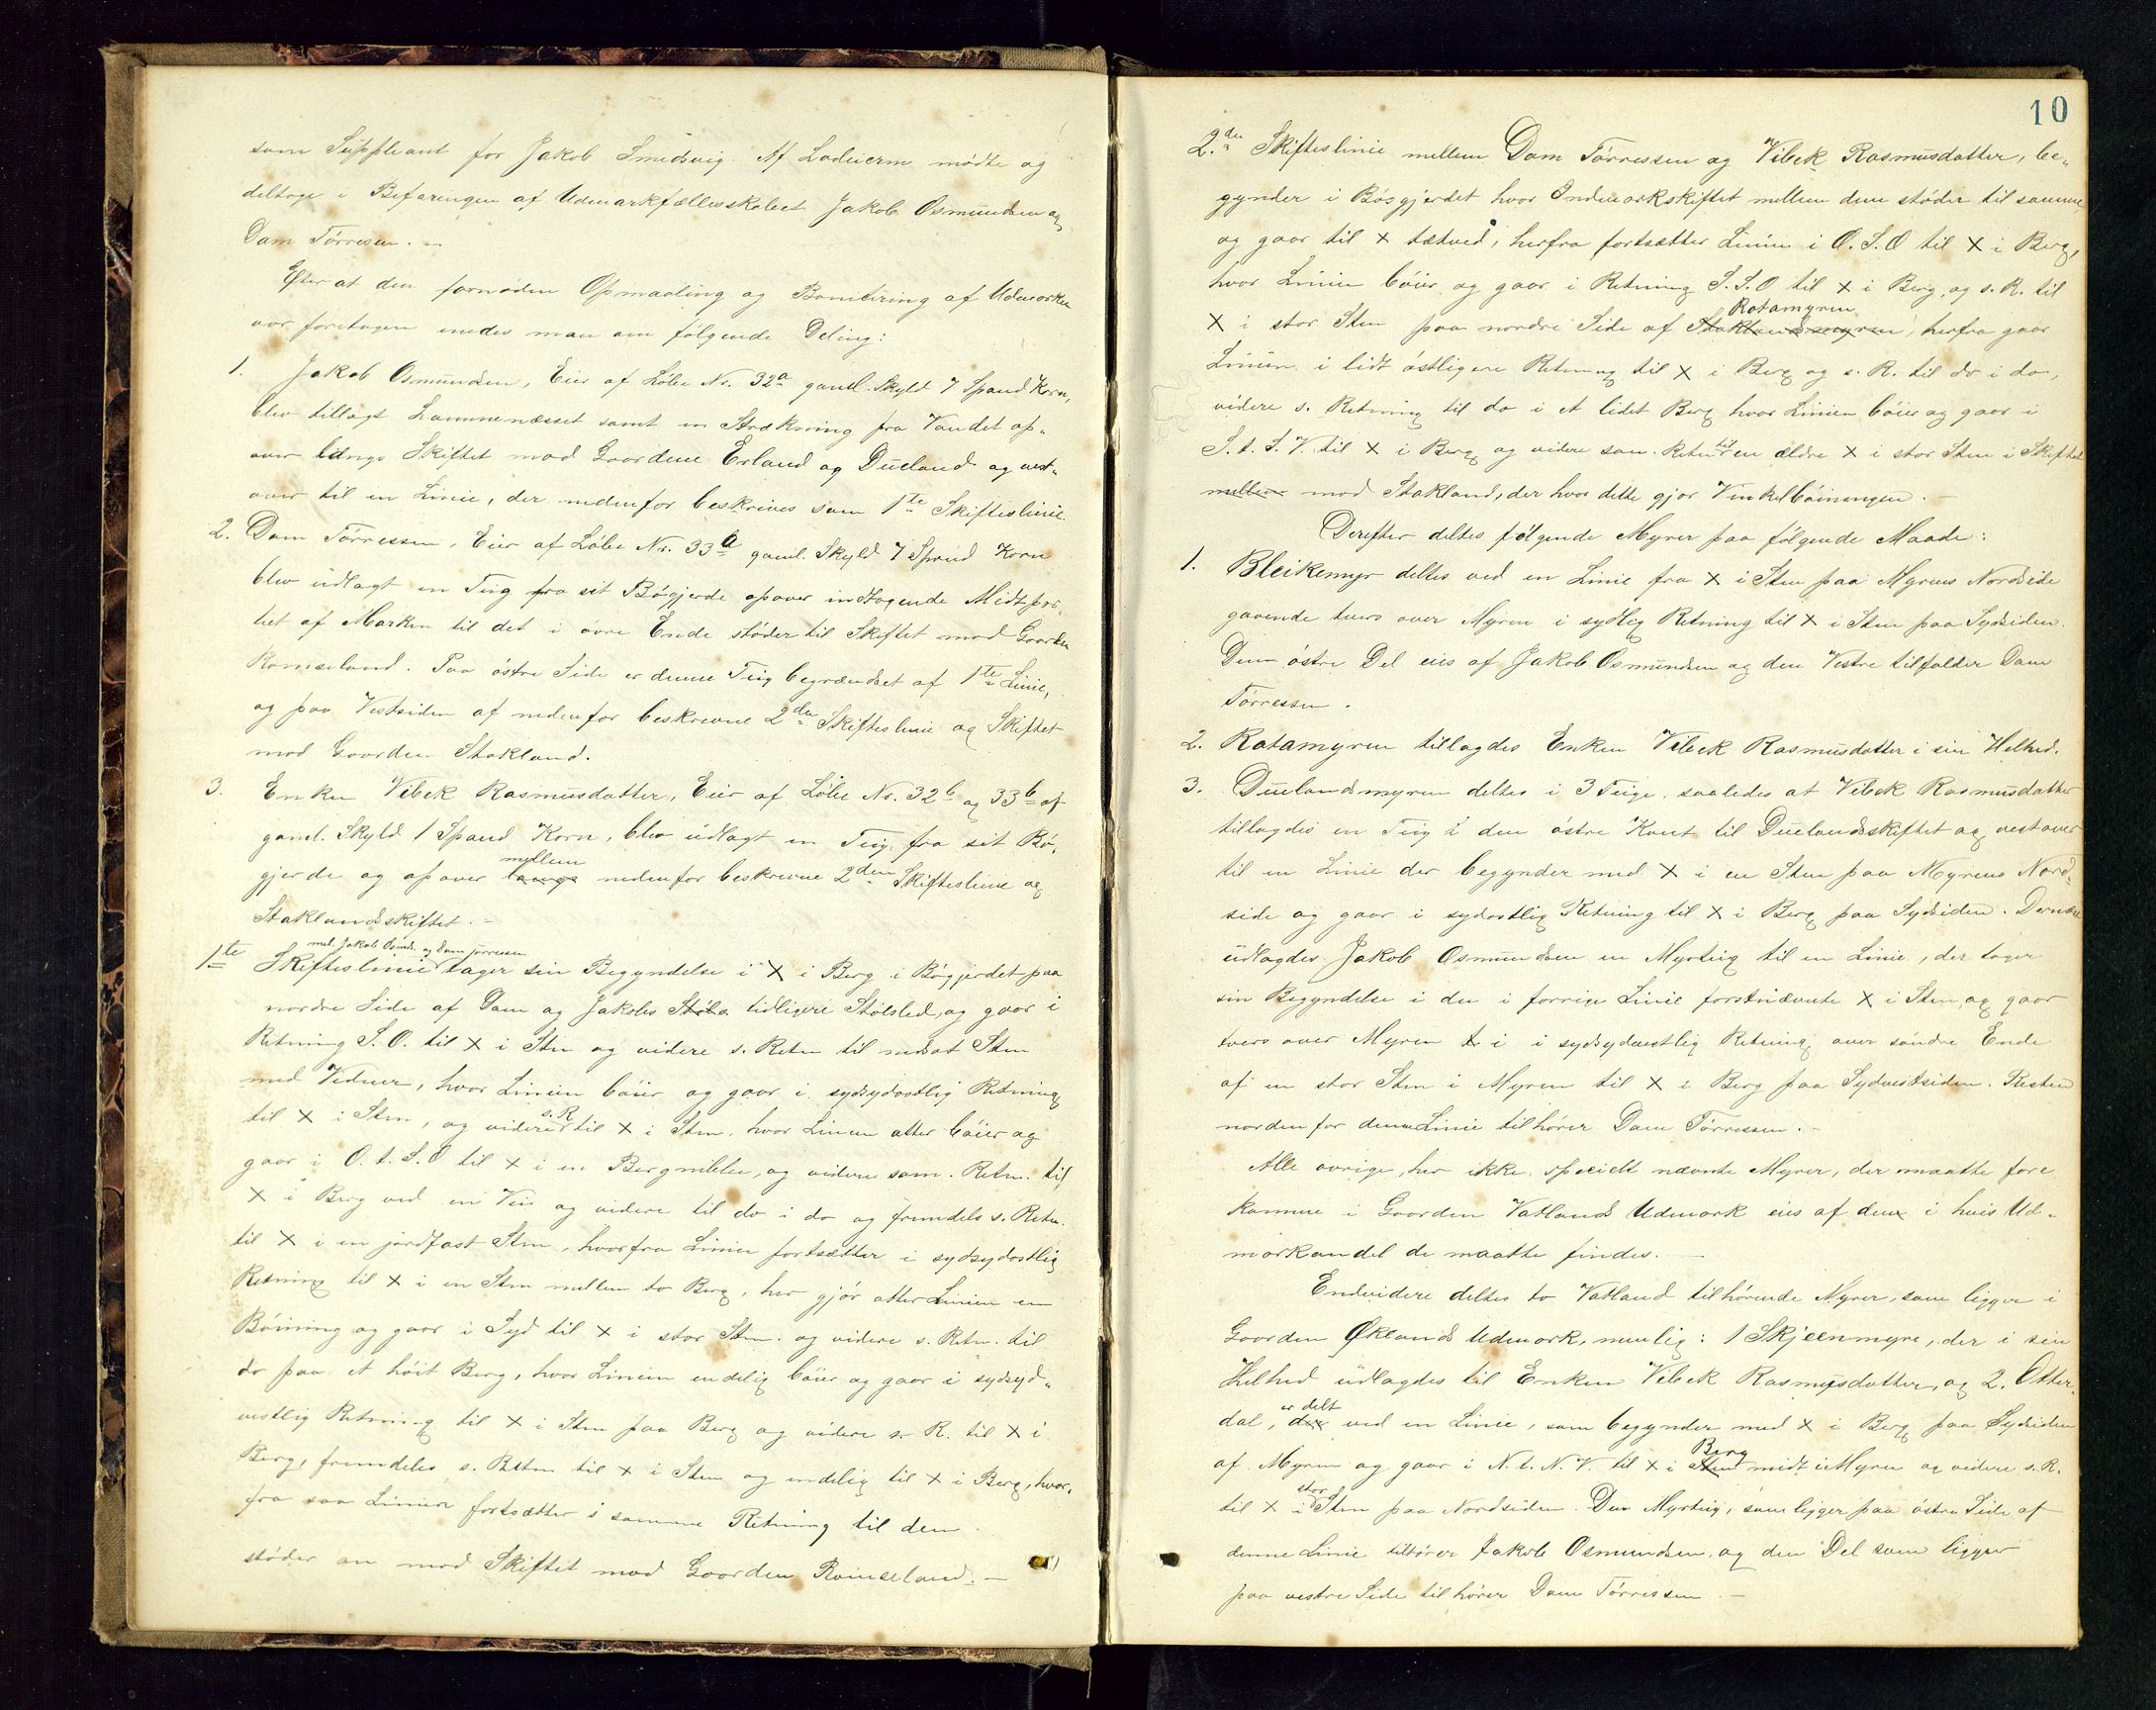 som Suppleant for Jakob Smedsvig. Af Lodeierne mødte og
deltoge i Befaringen af Udmarkfællesskabet Jakob Osmundsen og
Dam Tørresen. —
Efter at den fornødne Opmaaling og Bonitering af Udmarken
var foretagen enedes man om følgende Deling:
1. Jakob Osmundsen, Eier af Løbe Nr. 32a gaml. Skyld 7 Spand Korn,
blev tillagt Lammenæsset samt en Strækning fra Vandet op-
over langs Skiftet mod Gaardene Erland og Dueland og vest-
over til en Linie, der nedenfor beskrives som 1te Skifteslinie.
2. Dam Tørressen, Eier af Løbe Nr. 33a gaml. Skyld 7 Spand Korn
blev udlagt en Teig fra sit Bøgjerde opover indtagende Midtpar-
tiet af Marken til det i øvre Ende støder til Skiftet mod Gaarden
Ramseland. Paa østre Side er denne Teig begrændset af 1te Linie,
og paa Vestsiden af nedenfor beskrevne 2den Skifteslinie og Skiftet
mod Gaarden Stakland.
3. Enken Vibek Rasmusdatter, Eier af Løbe Nr. 32b og 33b af
gaml. Skyld 1 Spand Korn, blev udlagt en Teig fra sit Bø-
gjerde og opover langs mellem nedenfor beskrevne 2den Skifteslinie og
Staklandsskiftet. —
1te Skifteslinie mel. Jakob Osmds. og Dam Tørresen tager sin Begyndelse i X i Berg i Bøgjerdet paa
nordre Side af Dam og Jakobs Støls tidligere Stølsled, og gaar i
Retning S. O. til X i Sten og videre s. Retn til nedsat Sten
med Vidner, hvor Linien bøier og gaar i sydsydostlig Retning
til X i Sten, og videre s. R til X i Sten, hvor Linien atter bøier og
gaar i O. t. S. O til X i en Bergnibbe, og videre sam. Retn. til
X i Berg ved en Vei og videre til do i do og fremdels s. Retn.
til X i en jordfast Sten, hvorfra Linien fortsætter i sydsydostlig
Retning til X i en Sten mellem to Berg, her gjør atter Linien en
Bøining og gaar i Syd til X i stor Sten. og videre s. Retn. til
do paa et høit Berg, hvor Linien endelig bøier og gaar i sydsyd-
vestlig Retning til X i Sten paa Berg og videre s. R. til X i
Berg, fremdeles s. Retn til X i Sten og endelig til X i Berg, hvor-
fra saa Linien fortsætter i samme Retning til den
støder an mod Skiftet mod Gaarden Ramseland. —
10
2.den Skifteslinie mellem Dam Tørressen og Vibek Rasmusdatter, be-
gynder i Bøsgjerdet hvor Indmarkskiftet mellem dem støder til samme,
og gaar til X tætved, herfra fortsætter Linien i O. S. O til X i Berg,
hvor Linien bøier og gaar i Retning S. S. O til X i Berg, og s. R. til
X i stor Sten paa nordre Side af Staklandsmyren Ratamyren, herfra gaar
Linien i lidt østligere Retning til X i Berg og s. R. til do i do,
videre s. Retning til do i et lidet Berg hvor Linien bøier og gaar i
S. t. S. V. til X i Berg, og videre sam. Retn til en ældre X i stor Sten i Skiftet
mellem mod Stakland, der hvor dette gjør Vinkelbøiningen. —
Derefter deltes følgende Myrer paa følgende Maade:
1. Bleikemyr deltes ved en Linie fra X i Sten paa Myrens Nordside
gaaende tvers over Myren i sydlig Retning til X i Sten paa Sydsiden.
Den østre Del eies af Jakob Osmundsen og den Vestre tilfalder Dam
Tørressen.
2. Ratamyren tillagdes Enken Vibek Rasmusdatter i sin Helhed.
3. Duelandsmyren deltes i 3 Teige, saaledes at Vibek Rasmusdatter
tillagdes en Teig i den østre Kant til Duelandsskiftet og vestover
til en Linie der begynder med X i en Sten paa Myrens Nord-
side og gaar i sydostlig Retning til X i Berg paa Sydsiden. Dernæst
udlagdes Jakob Osmundsen en Myrteig til en Linie, der tager
sin Begyndelse i den i forrige Linie førstnævnte X i Sten og gaar
tvers over Myren i i sydsydvestlig Retning over søndre Ende
af en stor Sten i Myren til X i Berg paa Sydvestsiden. Resten
nordenfor denne Linie tilhører Dam Tørressen. —
Alle øvrige, her ikke specielt nævnte Myrer, der maatte fore
komme i Gaarden Vatlands Udmark eies af den i hvis Ud-
markandel de maatte findes. —
Endvidere deltes to Vatland tilhørende Myrer, som ligger i
Gaarden Øklands Udmark, nemlig: 1 Skjeenmyre, der i sin
Helhed udlagdes til Enken Vibek Rasmusdatter, og 2. Otter-
dal, der er delt ved en Linie, som begynder med X i Berg paa Sydsiden
af Myren og gaar i N. t. N. V. til X i Sten Berg midt i Myren og videre s. R.
til X i stor Sten paa Nordsiden. Den Myrteig, som ligger paa østre Side af
denne Linie tilhører Jakob Osmundsen, og den Del som ligger
paa vestre Side tilhører Dam Tørressen. —